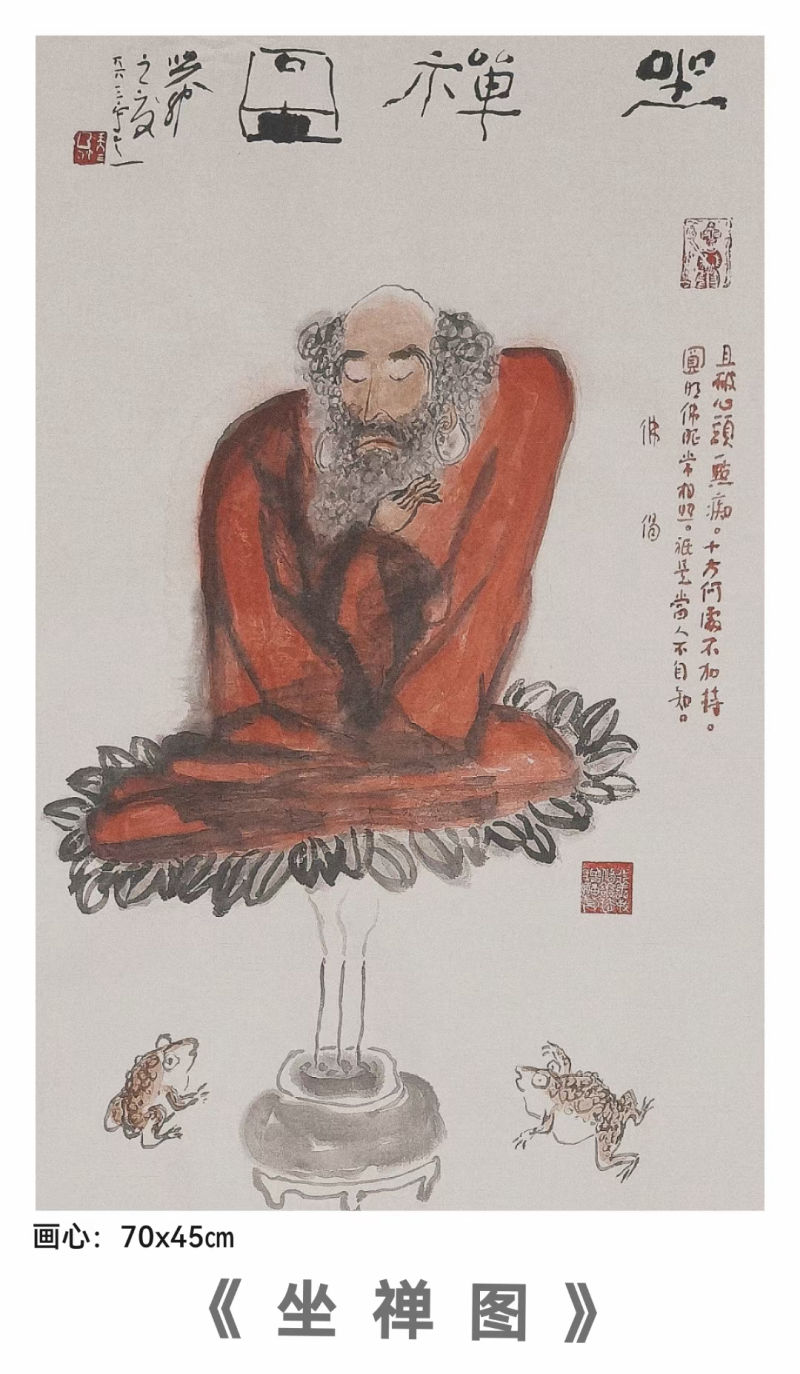 坐禪圖
癸卯
之夏
且破心頭一點痴。十方何處不加持。
圓明佛眼常相照。祇是當人不自知。
佛偈
画心：70x45cm
《坐禅图》